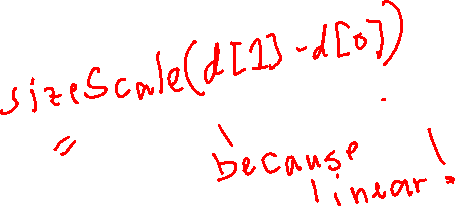 sizeScale(d[1]-d[0])
=
because
linear!